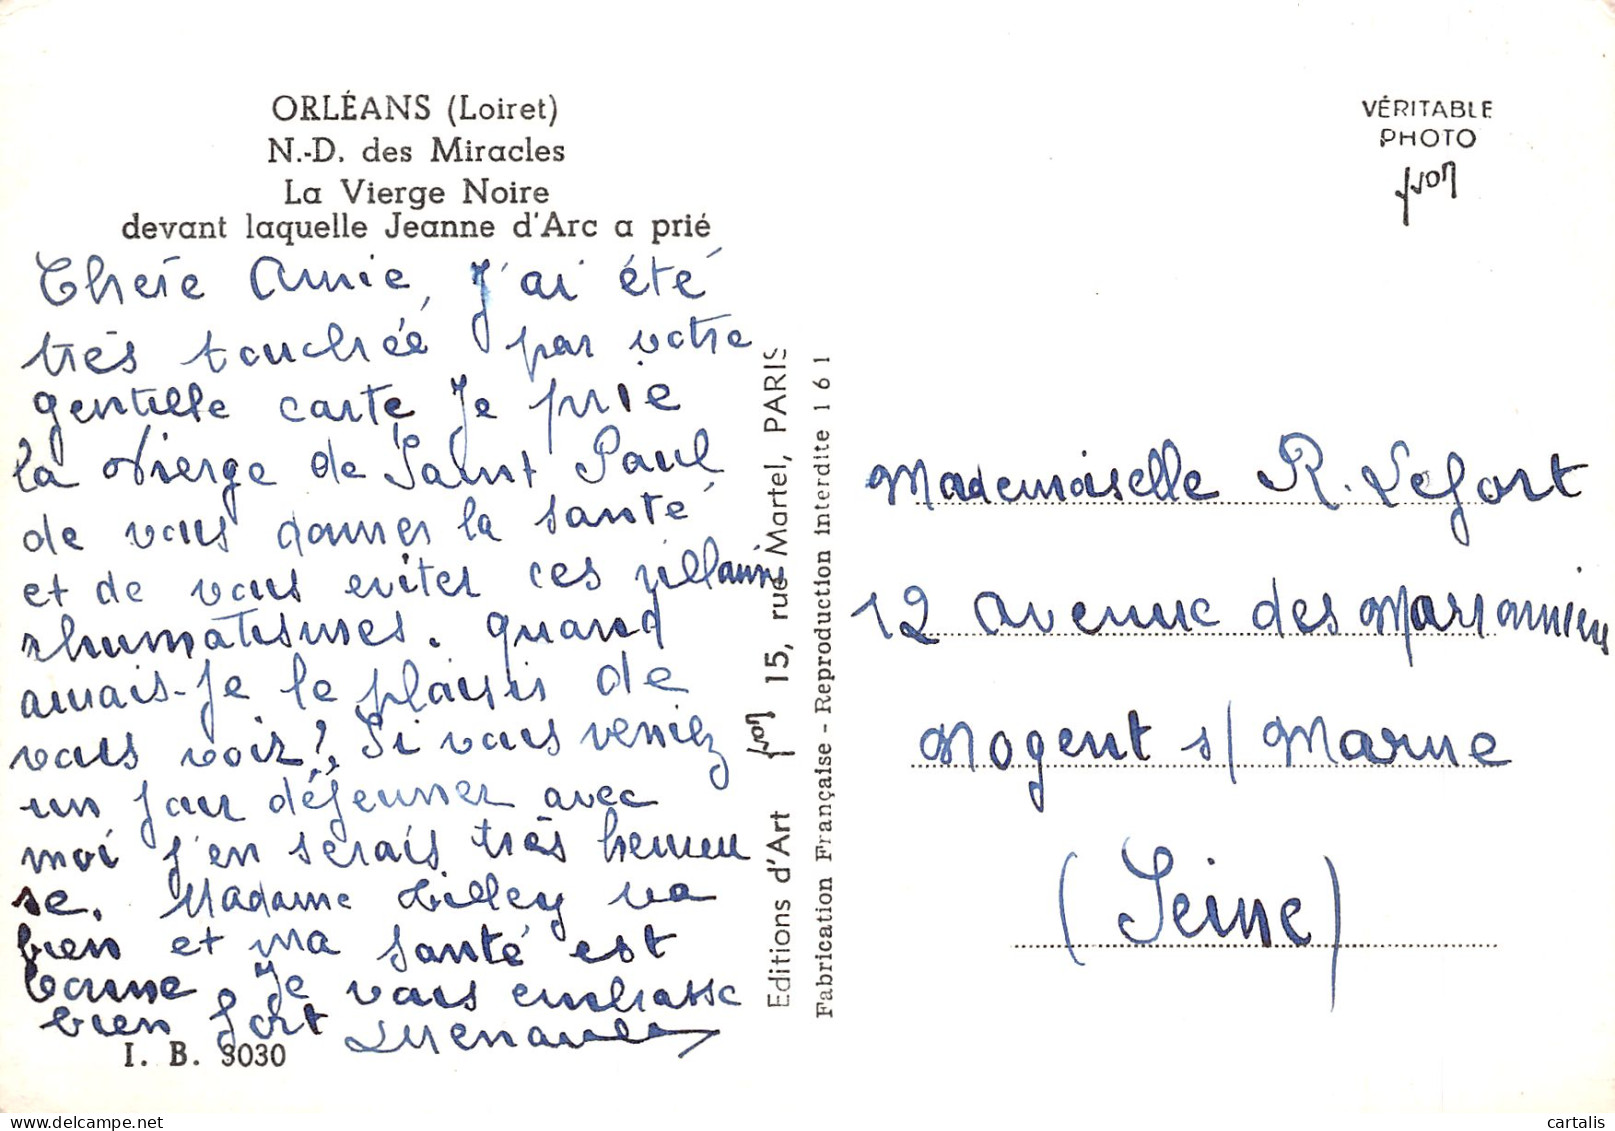 ORLÉANS (Loiret)
N.-D. des Miracles
La Vierge Noire
devant laquelle Jeanne d'Arc a prié
Chère Amie, J'ai été
très touchée par votre
gentille carte Je prie
la Vierge de Saint Paul
de vous donner la santé
et de vous eviter ces villains
rhumatismes. Quand
aurais-je le plaisir de
vous voir? Si vous veniez
un jour déjeuner avec
moi j'en serais très heureu
se. Madame va
bien et ma santé est
bonne Je vous embrasse
bien fort
I. B. 3030
Editions d'Art yvon 15, rue Martel, PARIS
Fabrication Française - Reproduction interdite 161
VÉRITABLE
PHOTO
yvon
Mademoiselle R. Lefort
12 avenue des Marronniers
Nogent s/ Marne
(Seine)
cartalis